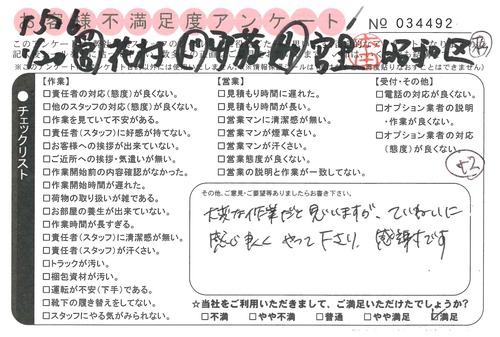 お客様不満足度アンケート
No 034492
【作業】
□責任者の対応(態度)が良くない。
□他のスタッフの対応(態度)が良くない。
□作業を見ていて不安がある。
□責任者(スタッフ)に好感が持てない。
□お客様への挨拶が出来ていない。
□ご近所への挨拶・気遣いが無い。
□作業開始前の内容確認がなかった。
□作業開始時間が遅れた。
□荷物の取り扱いが雑である。
□お部屋の養生が出来ていない。
□作業時間が長すぎる。
□責任者(スタッフ)に清潔感が無い。
□責任者(スタッフ)が汗くさい。
□トラックが汚い。
□梱包資材が汚い。
□運転が不安(下手)である。
□靴下の履き替えをしてない。
□スタッフにやる気がみられない。
●チェックリスト
【営業】
□見積もり時間に遅れた。
□見積もり時間が長い。
□営業マンに清潔感が無い。
□営業マンが煙草くさい。
□営業マンが汗くさい。
□営業態度が良くない。
□営業の説明と作業が一致してない。
【受付・その他】
□電話の対応が良くない。
□オプション業者の説明
・作業が良くない。
□オプション業者の対応
(態度)が良くない。
その他、ご意見・ご要望等ありましたらお書き下さい。
大変な作業だと思いますが、ていねいに
感じ良く やって下さり 感謝です
☆当社をご利用いただきまして、ご満足いただけたでしょうか?
□不満 □やや不満 □普通 □やや満足 □満足